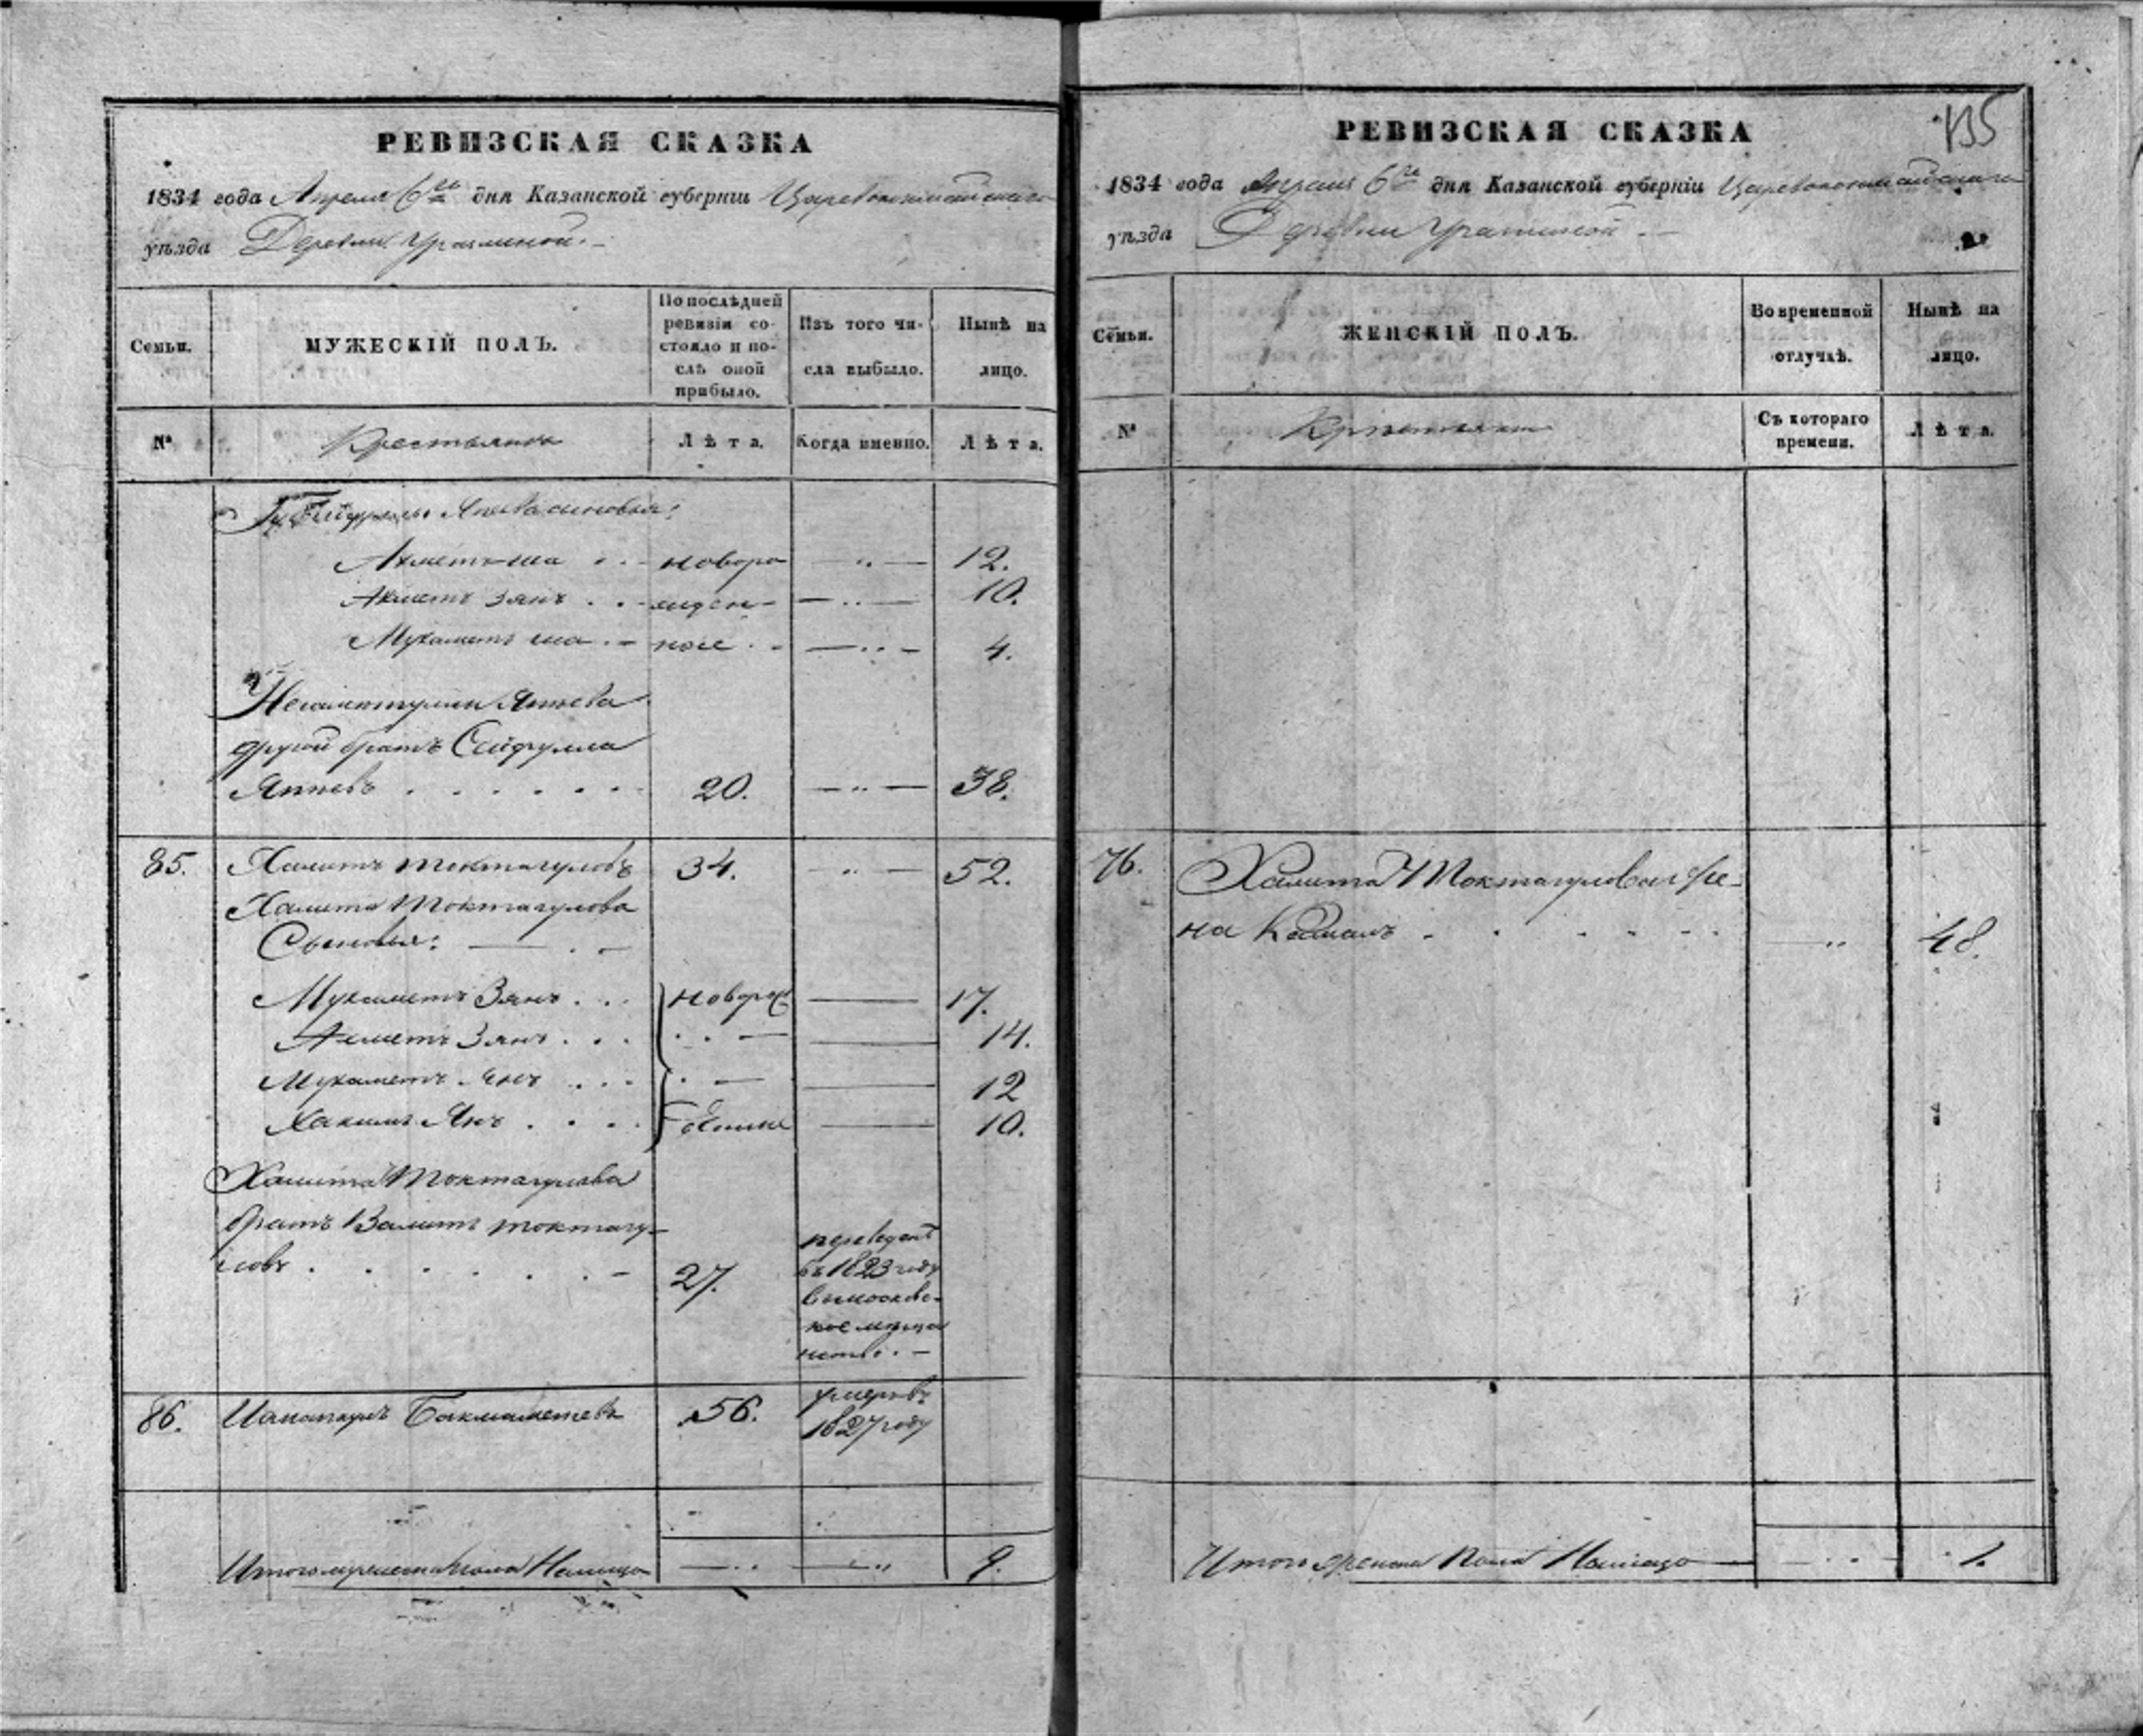 РЕВИЗСКАЯ СКАЗКА
1834 года Апреля 6го дня Казанской губерніи Царевококшайскаго
уѣзда Деревни Ураzлиной
Семьи. МУЖЕСКІЙ ПОЛЪ. По послѣдней ревизіи состояло и послѣ оной прибыло. Изъ того числа выбыло. Нынѣ на лицо.
№ Крестьяне Лѣта. Когда именно. Лѣта.
Ахметъ-ша новоро 12.
Ахметъ Зянъ жден 10.
Мухаметъ ша ные 4.
Неаметуллы Яппева
другой братъ Сайфулла
Яппевъ 20. 38.
85. Хамитъ Токтагуловъ 34. 52.
Хамита Токтагулова
Сыновья:
Мухаметъ Зянъ новорож 17.
Ахметъ Зянъ 14.
Мухаметъ Янъ 12
Хакимъ Янъ 10.
Хамита Токтагулова
братъ Валитъ Токтагу-
ловъ 27. переведенъ въ 1823 году
86. Бикмаметевъ 56. умеръ въ
1827 году
Итого мужеска пола Налицо 9.
135
РЕВИЗСКАЯ СКАЗКА
1834 года Апреля 6го дня Казанской губерніи Царевококшайскаго
уѣзда Деревни
Семьи. ЖЕНСКІЙ ПОЛЪ. Во временной отлучкѣ. Нынѣ на лицо.
№ Крестьяне Съ котораго времени. Лѣта.
76. Хамита Токтагулова же-
на 48.
Итого женска Пола Налицо 1.